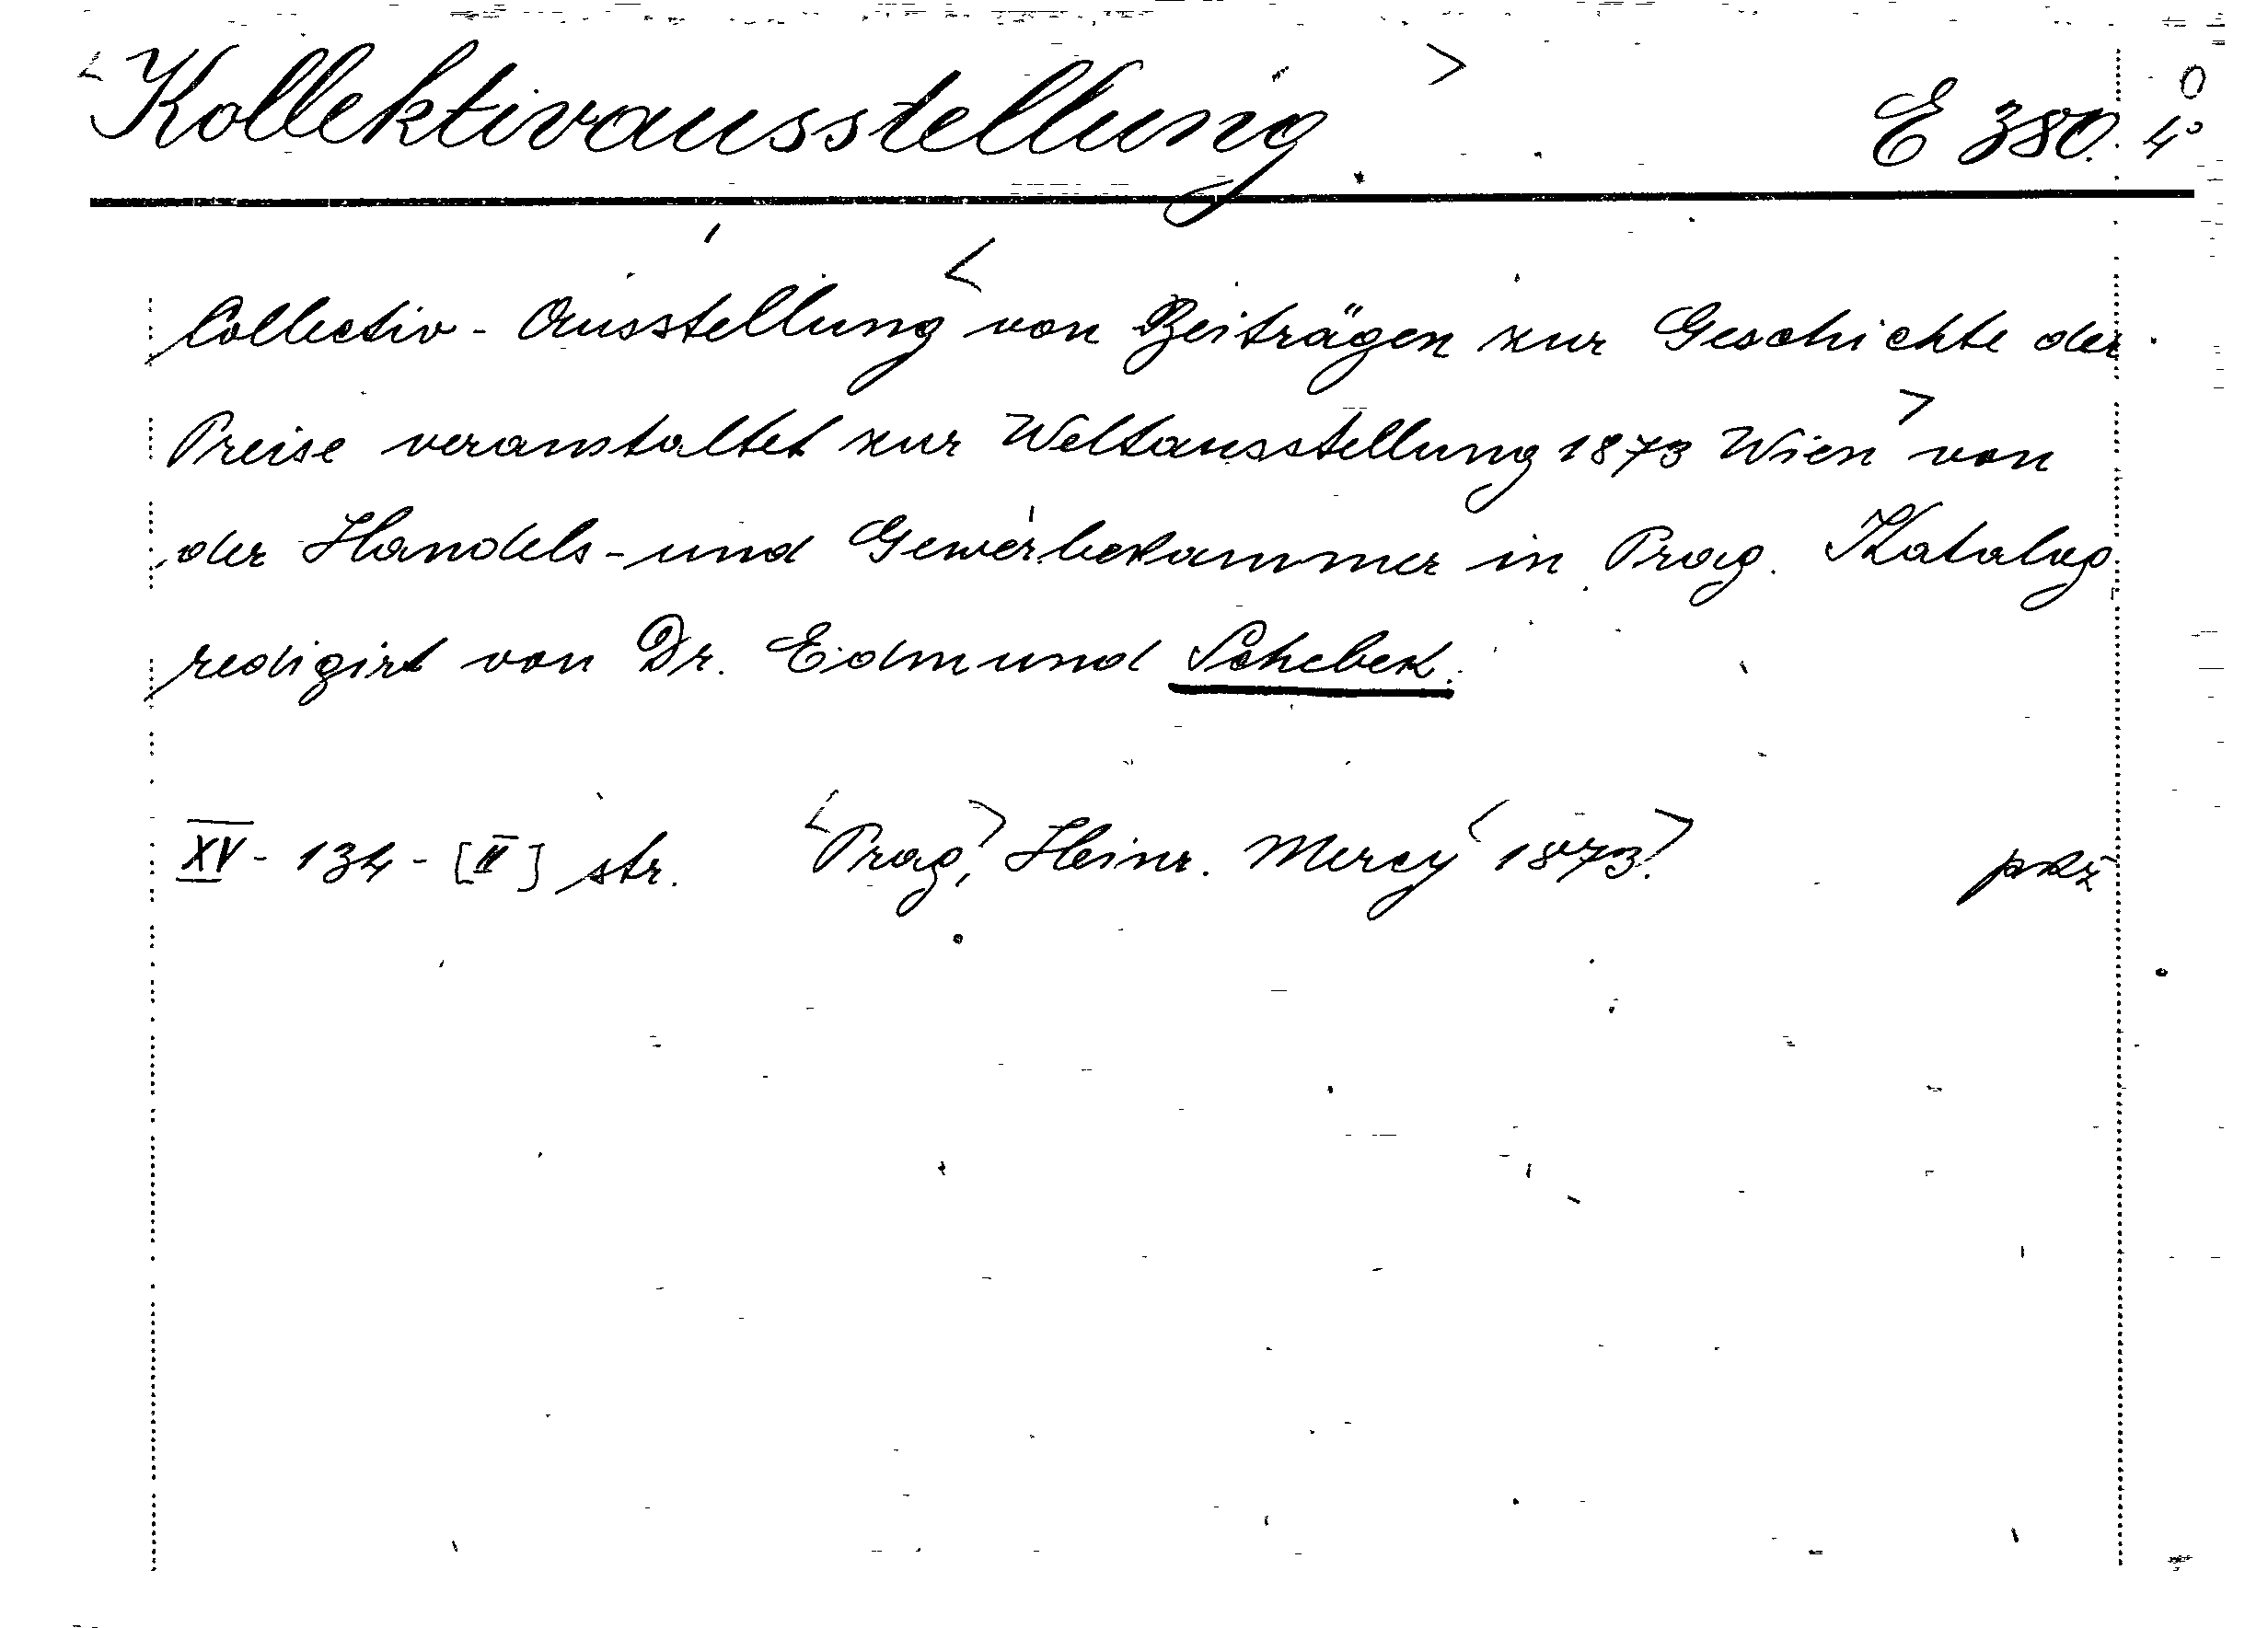 <Kollektivausstellung> E 380. 4° O
Collectiv-Ausstellung <von Beiträgen zur Geschichte der
Preise veranstaltet zur Weltausstellung 1873 Wien> von
der Handels- und Gewerbekammer in Prag. Katalog
redigirt von Dr. Edmund Schebek.
XV - 134 - [II] str. <Prag,> Heinr. Mercy <1873.> pkž